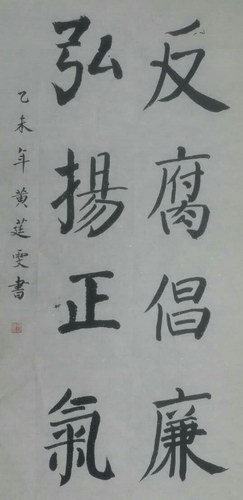 反腐倡廉
弘揚正氣
乙未年黄莛雯書